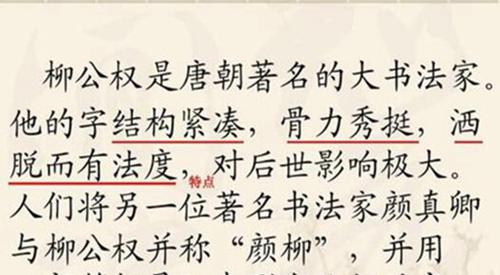 柳公权是唐朝著名的大书法家。
他的字结构紧凑，骨力秀挺，洒
脱而有法度，对后世影响极大。
特点
人们将另一位著名书法家颜真卿
与柳公权并称“颜柳”，并用